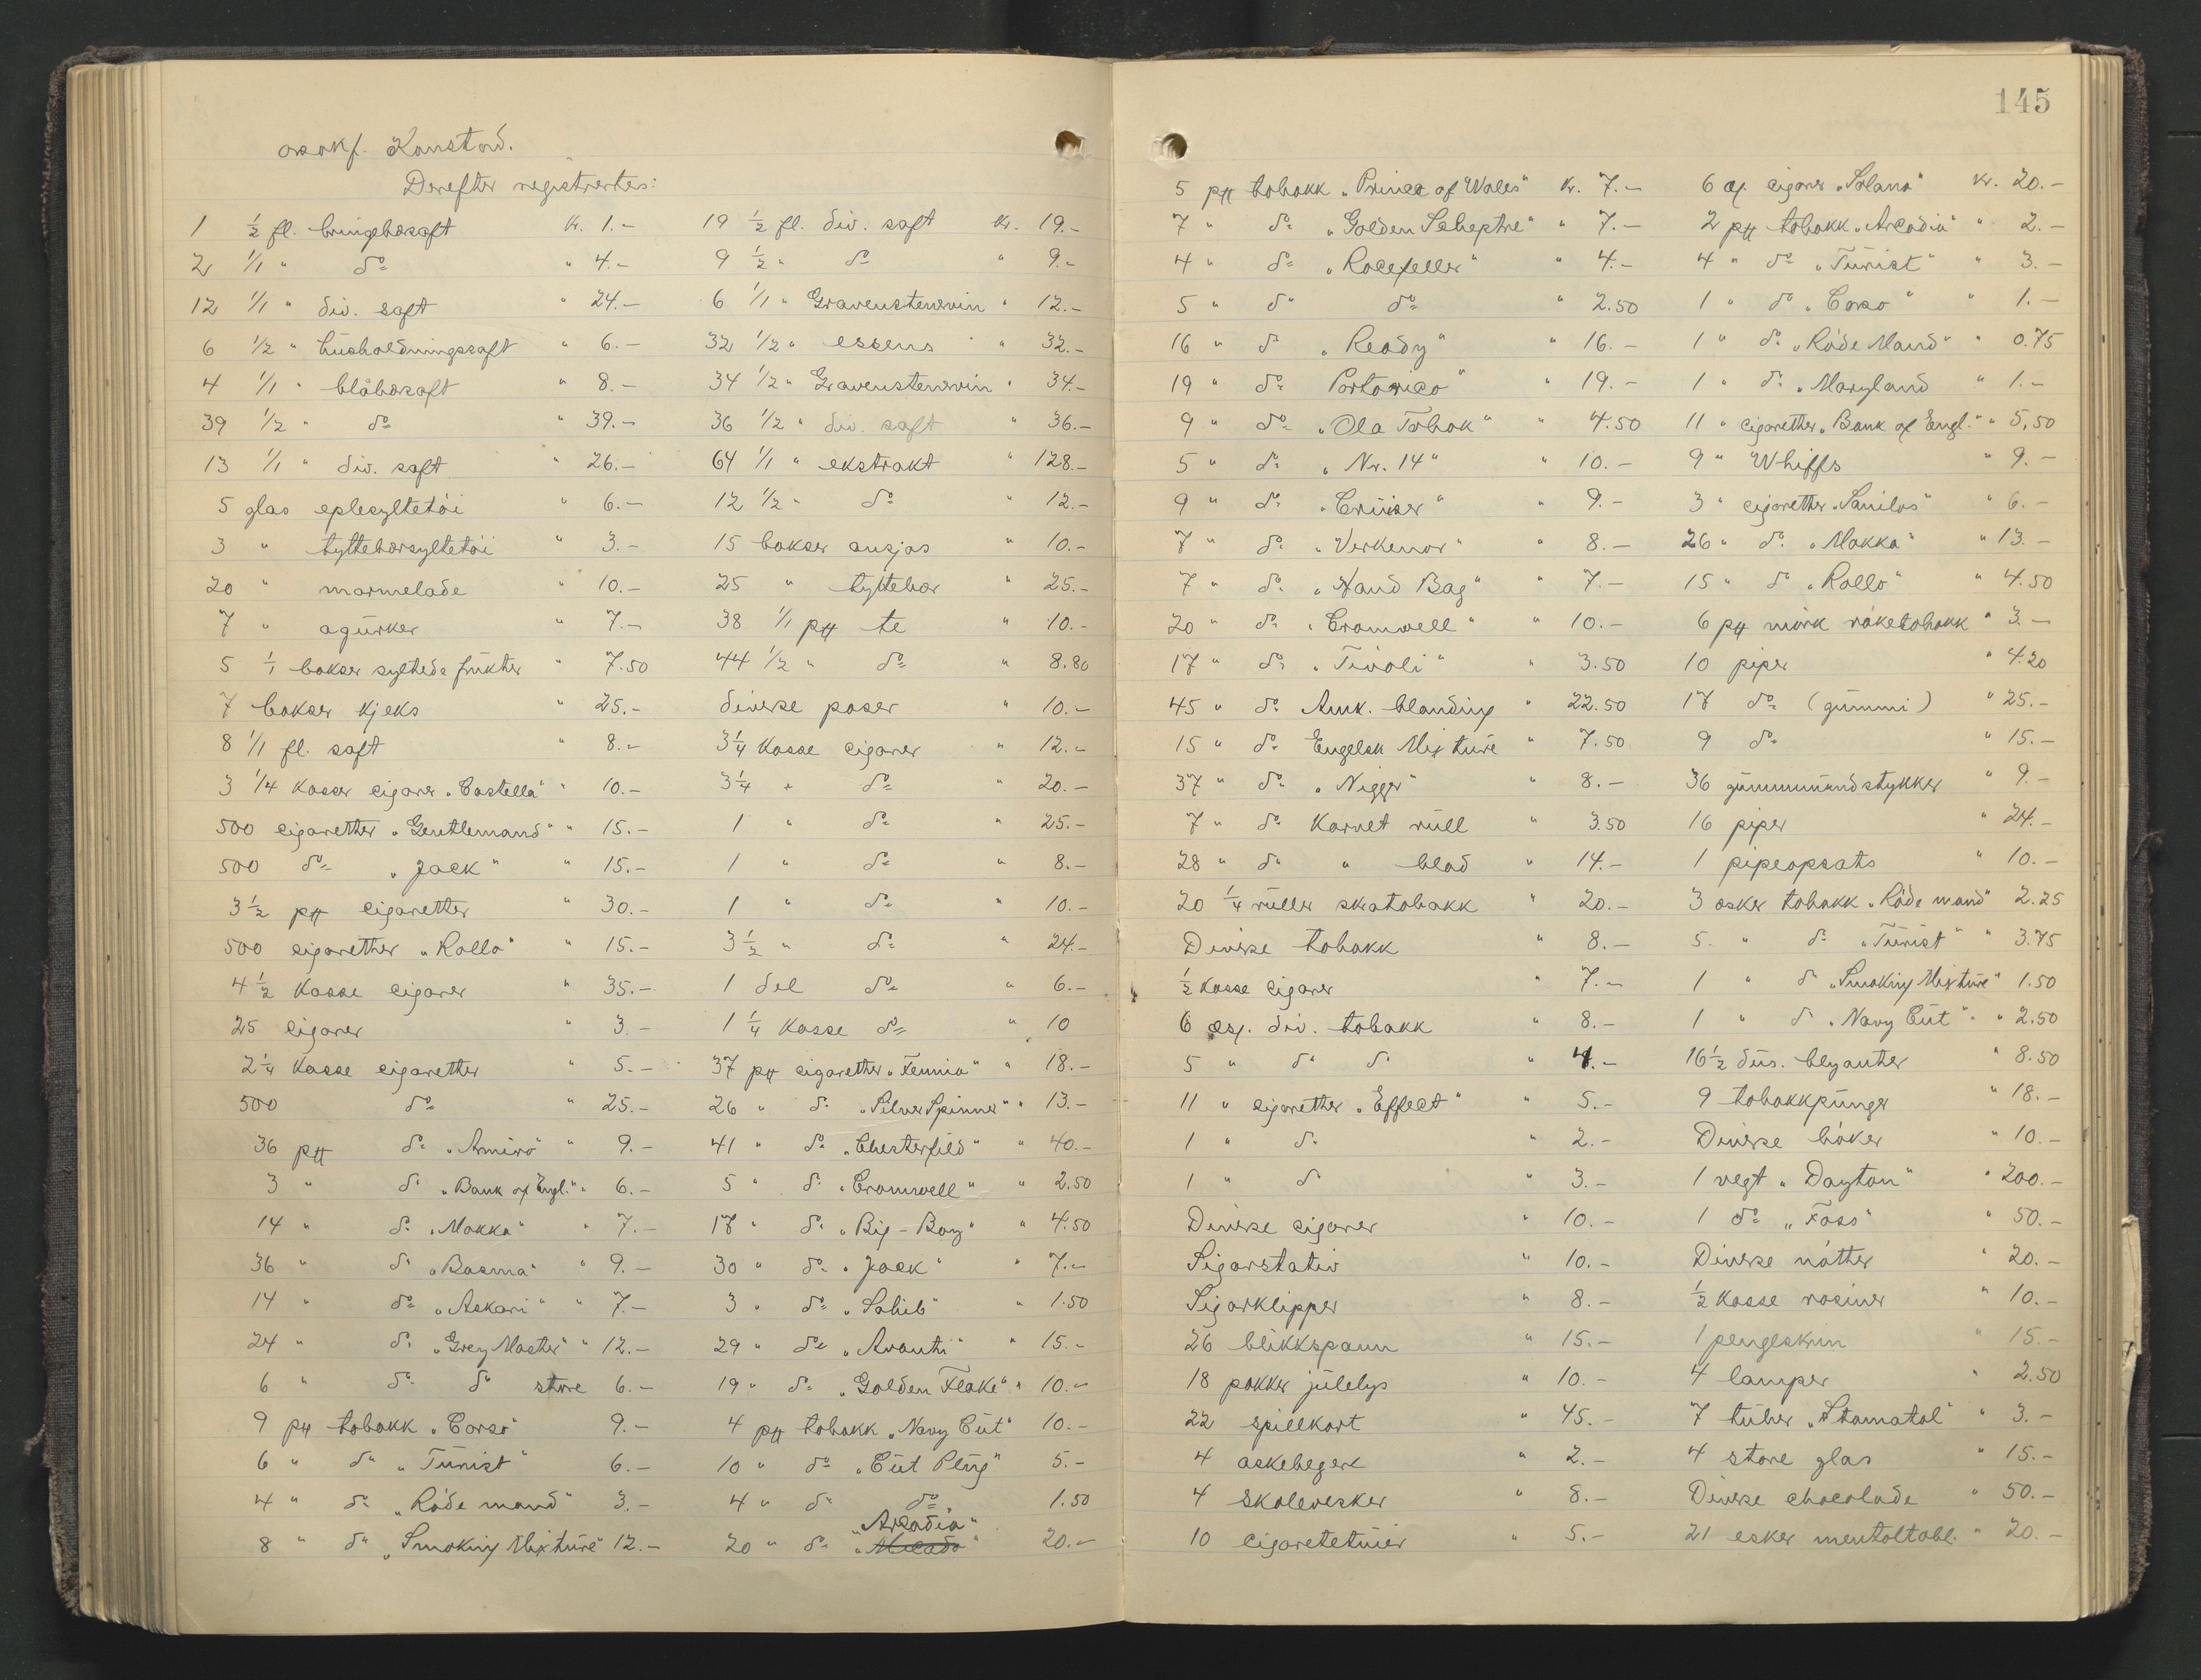 Konstad.
Derefter registrertes:
1 ½ fl. bringebærsaft kr. 1.-
2 1/1 " do " 4.-
12 1/1 " div. saft " 24.-
6 1/2 " husholdningssaft " 6.-
4 1/1 " blåbærsaft " 8.-
39 1/2 " do " 39.-
13 1/1 " div. saft " 26.-
5 glas eplesyltetöi " 6.-
3 " tyttebærsyltetöi " 3.-
20 " marmelade " 10.-
7 " agurker " 7.-
5 1/1 bokser syltede frukter " 7.50
7 bokser kjeks " 25.-
8 1/1 fl. saft " 8.-
3 1/4 kasser cigarer „Castella" " 10.-
500 cigaretter „Gentlemand" " 15.-
500 do „Jack" " 15.-
3 ½ pk cigaretter " 30.-
500 cigaretter „Rollo" " 15.-
4 ½ kasse cigarer " 35.-
25 cigarer " 3.-
2 ¼ kasse cigaretter " 5.-
500 do " 25.-
36 pk do „Armiro" " 9.-
3 " do „Bank of Engl." " 6.-
14 " do „Mokka" " 7.-
36 " do „Basma" " 9.-
14 " do „Askari" " 7.-
24 " do „Grey Master" " 12.-
6 " do do store 6.-
9 pk tobakk „Corso" 9.-
6 " do „Turist" 6.-
4 " do „Röde mand" 3.-
8 " do „Smoking Mixture" 12.-
19 ½ fl. div. saft kr. 19.-
9 ½ " do " 9.-
6 1/1 " Gravenstenvin " 12.-
32 1/2 " essens " 32.-
34 1/2 " Gravenstenvin " 34.-
36 1/2 " div. saft " 36.-
64 1/1 " ekstrakt " 128.-
12 1/2 " do " 12.-
15 bokser ansjos " 10.-
25 " tyttebær " 25.-
38 1/1 pk te " 10.-
44 1/2 " do " 8.80
diverse poser " 10.-
3 ¼ kasse cigarer " 12.-
3 ¼ " do " 20.-
1 " do " 25.-
1 " do " 8.-
1 " do " 10.-
3 ½ " do " 24.-
1 del do " 6.-
1 ¼ kasse do " 10
37 pk cigaretter „Fennia" " 18.-
26 " do „Silver Spinner" " 13.-
41 " do „Chesterfild" " 40.-
5 " do „Cromwell" " 2.50
17 " do „Big-Boy" " 4.50
30 " do „Jack" " 7.-
3 " do „Sahib" " 1.50
29 " do „Avanti" " 15.-
19 " do „Golden Flake" " 10.-
4 pk tobakk „Navy Cut" 10.-
10 " do „Cut Plug" 5.-
4 " do do 1.50
20 " do „Arcadia" 20.-
145
5 pk tobakk „Prince of Wales" kr. 7.-
7 " do „Golden Scheptre" " 7.-
4 " do „Rocefeller" " 4.-
5 " do do " 2.50
16 " do „Ready" " 16.-
19 " do Portorico" " 19.-
9 " do „Ola Tobak" " 4.50
5 " do „Nr. 14" " 10.-
9 " do „Cruiser" " 9.-
7 " do „Verkenor" " 8.-
7 " do „Hand Bag" " 7.-
20 " do „Cromwell" " 10.-
17 " do „Tivoli" " 3.50
45 " do Amk. blanding " 22.50
15 " do Engelsk Mixture " 7.50
37 " do „Nigger" " 8.-
7 " do Karvet rull " 3.50
28 " do " blad " 14.-
20 ¼ ruller skråtobakk " 20.-
Diverse tobakk " 8.-
½ kasse cigarer " 7.-
6 esk. div. tobakk " 8.-
5 " do do " 4.-
11 " cigaretter „Effect" " 5.-
1 " do " 2.-
1 " do " 3.-
Diverse cigarer " 10.-
Sigarstativ " 10.-
Sigarklipper " 8.-
26 blikkspann " 15.-
18 pakker julelys " 10.-
22 spillkort " 45.-
4 askebegere " 2.-
4 skolevesker " 8.-
10 cigaretetuier " 5.-
6 cigarer „Solana" kr. 20.-
2 pk tobakk „Arcadia" " 2.-
4 " do „Turist" " 3.-
1 " do „Corso" " 1.-
1 " do „Röde Mand" " 0.75
1 " do „Maryland " 1.-
11 " cigaretter „Bank of Engl." " 5,50
9 " Whiffs " 9.-
3 " cigaretter „Sanilos" " 6.-
26 " do „Mokka" " 13.-
15 " do „Rollo" " 4.50
6 pk mörk röketobakk " 3.-
10 piper " 4.20
17 do (gummi) " 25.-
9 do " 15.-
36 gummimundstykker " 9.-
16 piper " 24.-
1 pipeopsats " 10.-
3 esker tobakk „Röde mand" 2.25
5 " do „Turist" " 3.75
1 " do „Smoking Mixture" 1.50
1 " do „Navy Cut" " 2.50
16 ½ dus. blyanter " 8.50
9 tobakkpunger " 18.-
Diverse böker " 10.-
1 vegt „Dayton" " 200.-
1 do „Foss" " 50.-
Diverse nötter " 20.-
½ kasse rosiner " 10.-
1 pengeskrin " 15.-
4 lamper " 2.50
7 tuber „Stomatol" " 3.-
4 store glas " 15.-
Diverse chocolade " 50.-
21 esker mentoltabl. " 20.-